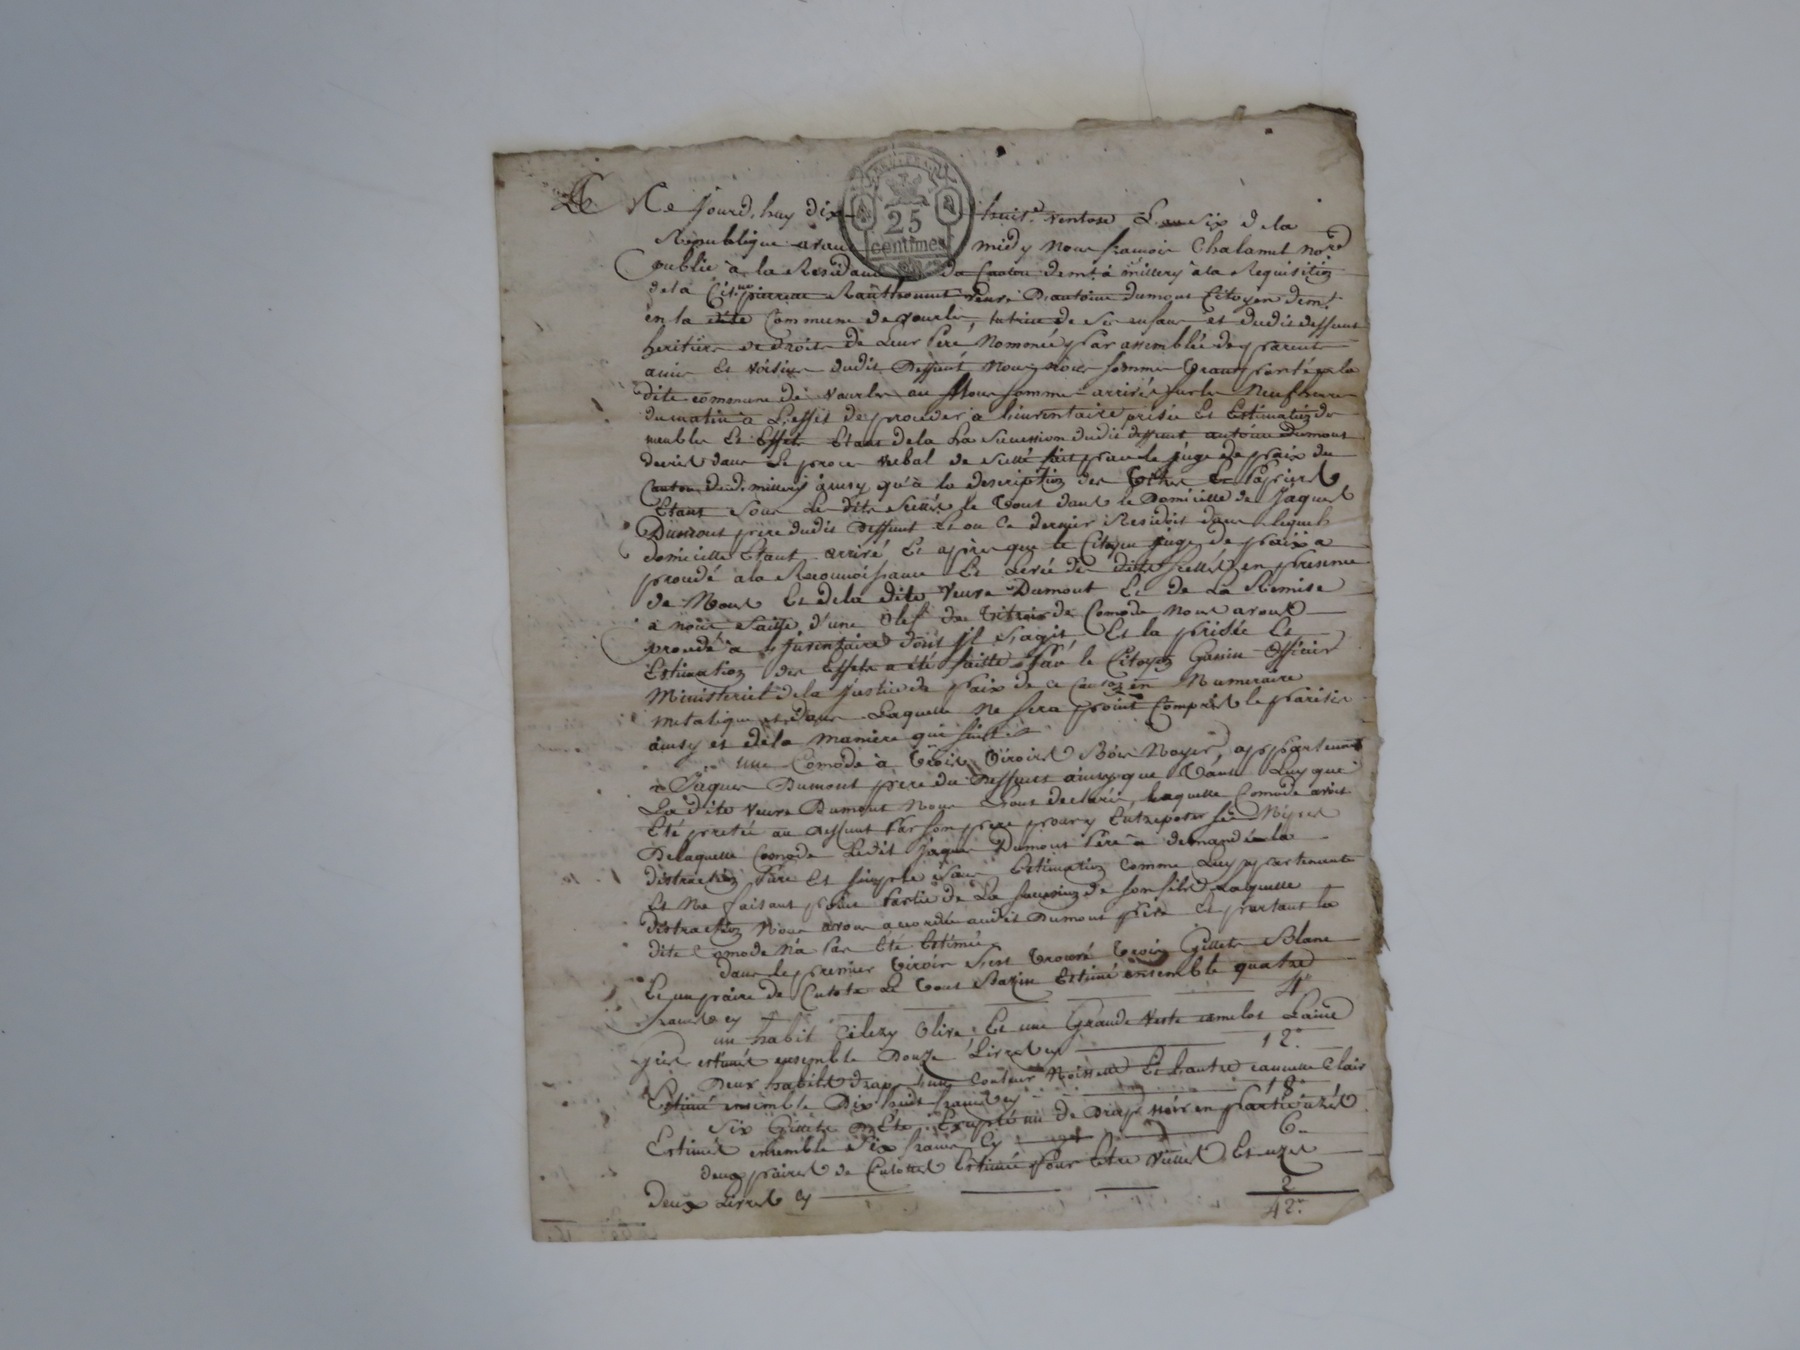 Ce jourd'huy dix huit.e ventose L'an six de la
25
centimes
République avan midy Nous francois Chalamel no.re
publié à la Résidance du Canton demt à millery à la Requisition
de la Cit.ne pierrette veuve D'antoine dumont Citoyen demt
en la dite Commune de vourles, tutrice de ses enfans et dudit deffunt
heritiers de droits de Leur Pere Nommée par assemblée de parents
amis et voisins dudit Deffunt Nous Nous somme transporté a la
dite commune de vourles ou Nous somme arrivés sur les Neuf heures
du matin à L'effet de proceder à L'inventaire prisée Et Estimation des
meubles Et Effets Etans de la Succession dudit deffunt antoine Dumont
decrit dans Le proces verbal de scellé fait par le juge de paix du
Canton dud. millery ainsy qu'à la description des Titres Et Papiers
Etans sous Les dits scellés le tout dans le Domicille de Jaques
Dumont pere dudit Deffunt Et ou Ce dernier Residoit dans lequel
domicille Etant arrivé Et après que le Citoyen juge de paix a
procedé a la Reconnoissance Et Levée des dits scellés en presence
de Nous Et de la dite veuve Dumont Et de La Remise
a nous faitte d'une Clef des de Comode Nous avons
procedé à L'inventaire dont il s'agit, Et la prisée Et
Estimation des Effets a été faitte par le Citoyen officier
Ministeriel de la justice de paix de ce canton en Numeraire
metalique et dans Laquelle Ne sera point Compris le
ainsy et de la maniere qui suit
une Comode à trois tiroirs Bois Noyer, appartenant
à Jaques Dumont pere du Deffunt ainsy que tant Luy que
La dite veuve Dumont Nous L'ont declaré, laquelle Comode avoit
Eté pretée au deffunt Par son pere pour y Entreposer ses
De laquelle Comode Ledit Jaques Dumont Pere a demandé la
distraction Pure Et simple sans Estimation comme Luy appartenante
Et Ne faisant point Partie de La succession de son fils Laquelle
distraction Nous avons accordée audit Dumont Pere Et partant la
dite Comode N'a Pas Eté Estimée
dans le premier tiroir s'est trouvé trois Gillets Blanc
Et un paire de Culotte Le tout Bazin Estimé ensemble quatre
francs cy 4"
un habit Olive, Et une Grande veste camelot Laine
Gris estimé ensemble Douze Livres cy 12"
Deux habits drap L'un Couleur Noisette Et L'autre cannelle Clair
Estimé ensemble Dix huit francs cy 18"
Six Gillets un de Drap Noir en partie uzés
Estimés ensemble Six francs Cy 6"
deux paires de Culottes Estimée Pour Etre vielles Et uzés
deux Livres Cy 2
42"